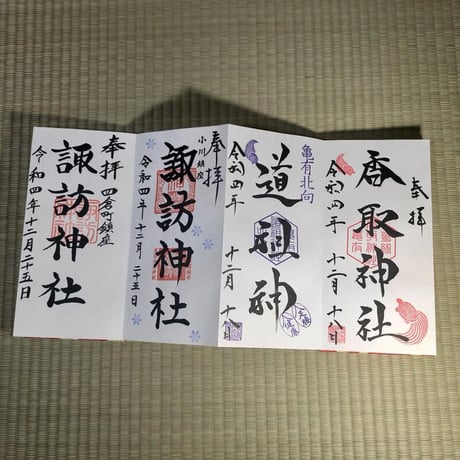 奉拝
香取神社
令和四年 十二月 十八日
亀有北向
道祖神
令和四年 十二月 十八日
奉拝
小川鎮座
諏訪神社
令和四年 十二月二十五日
奉拝
四倉町鎮座
諏訪神社
令和四年十二月二十五日